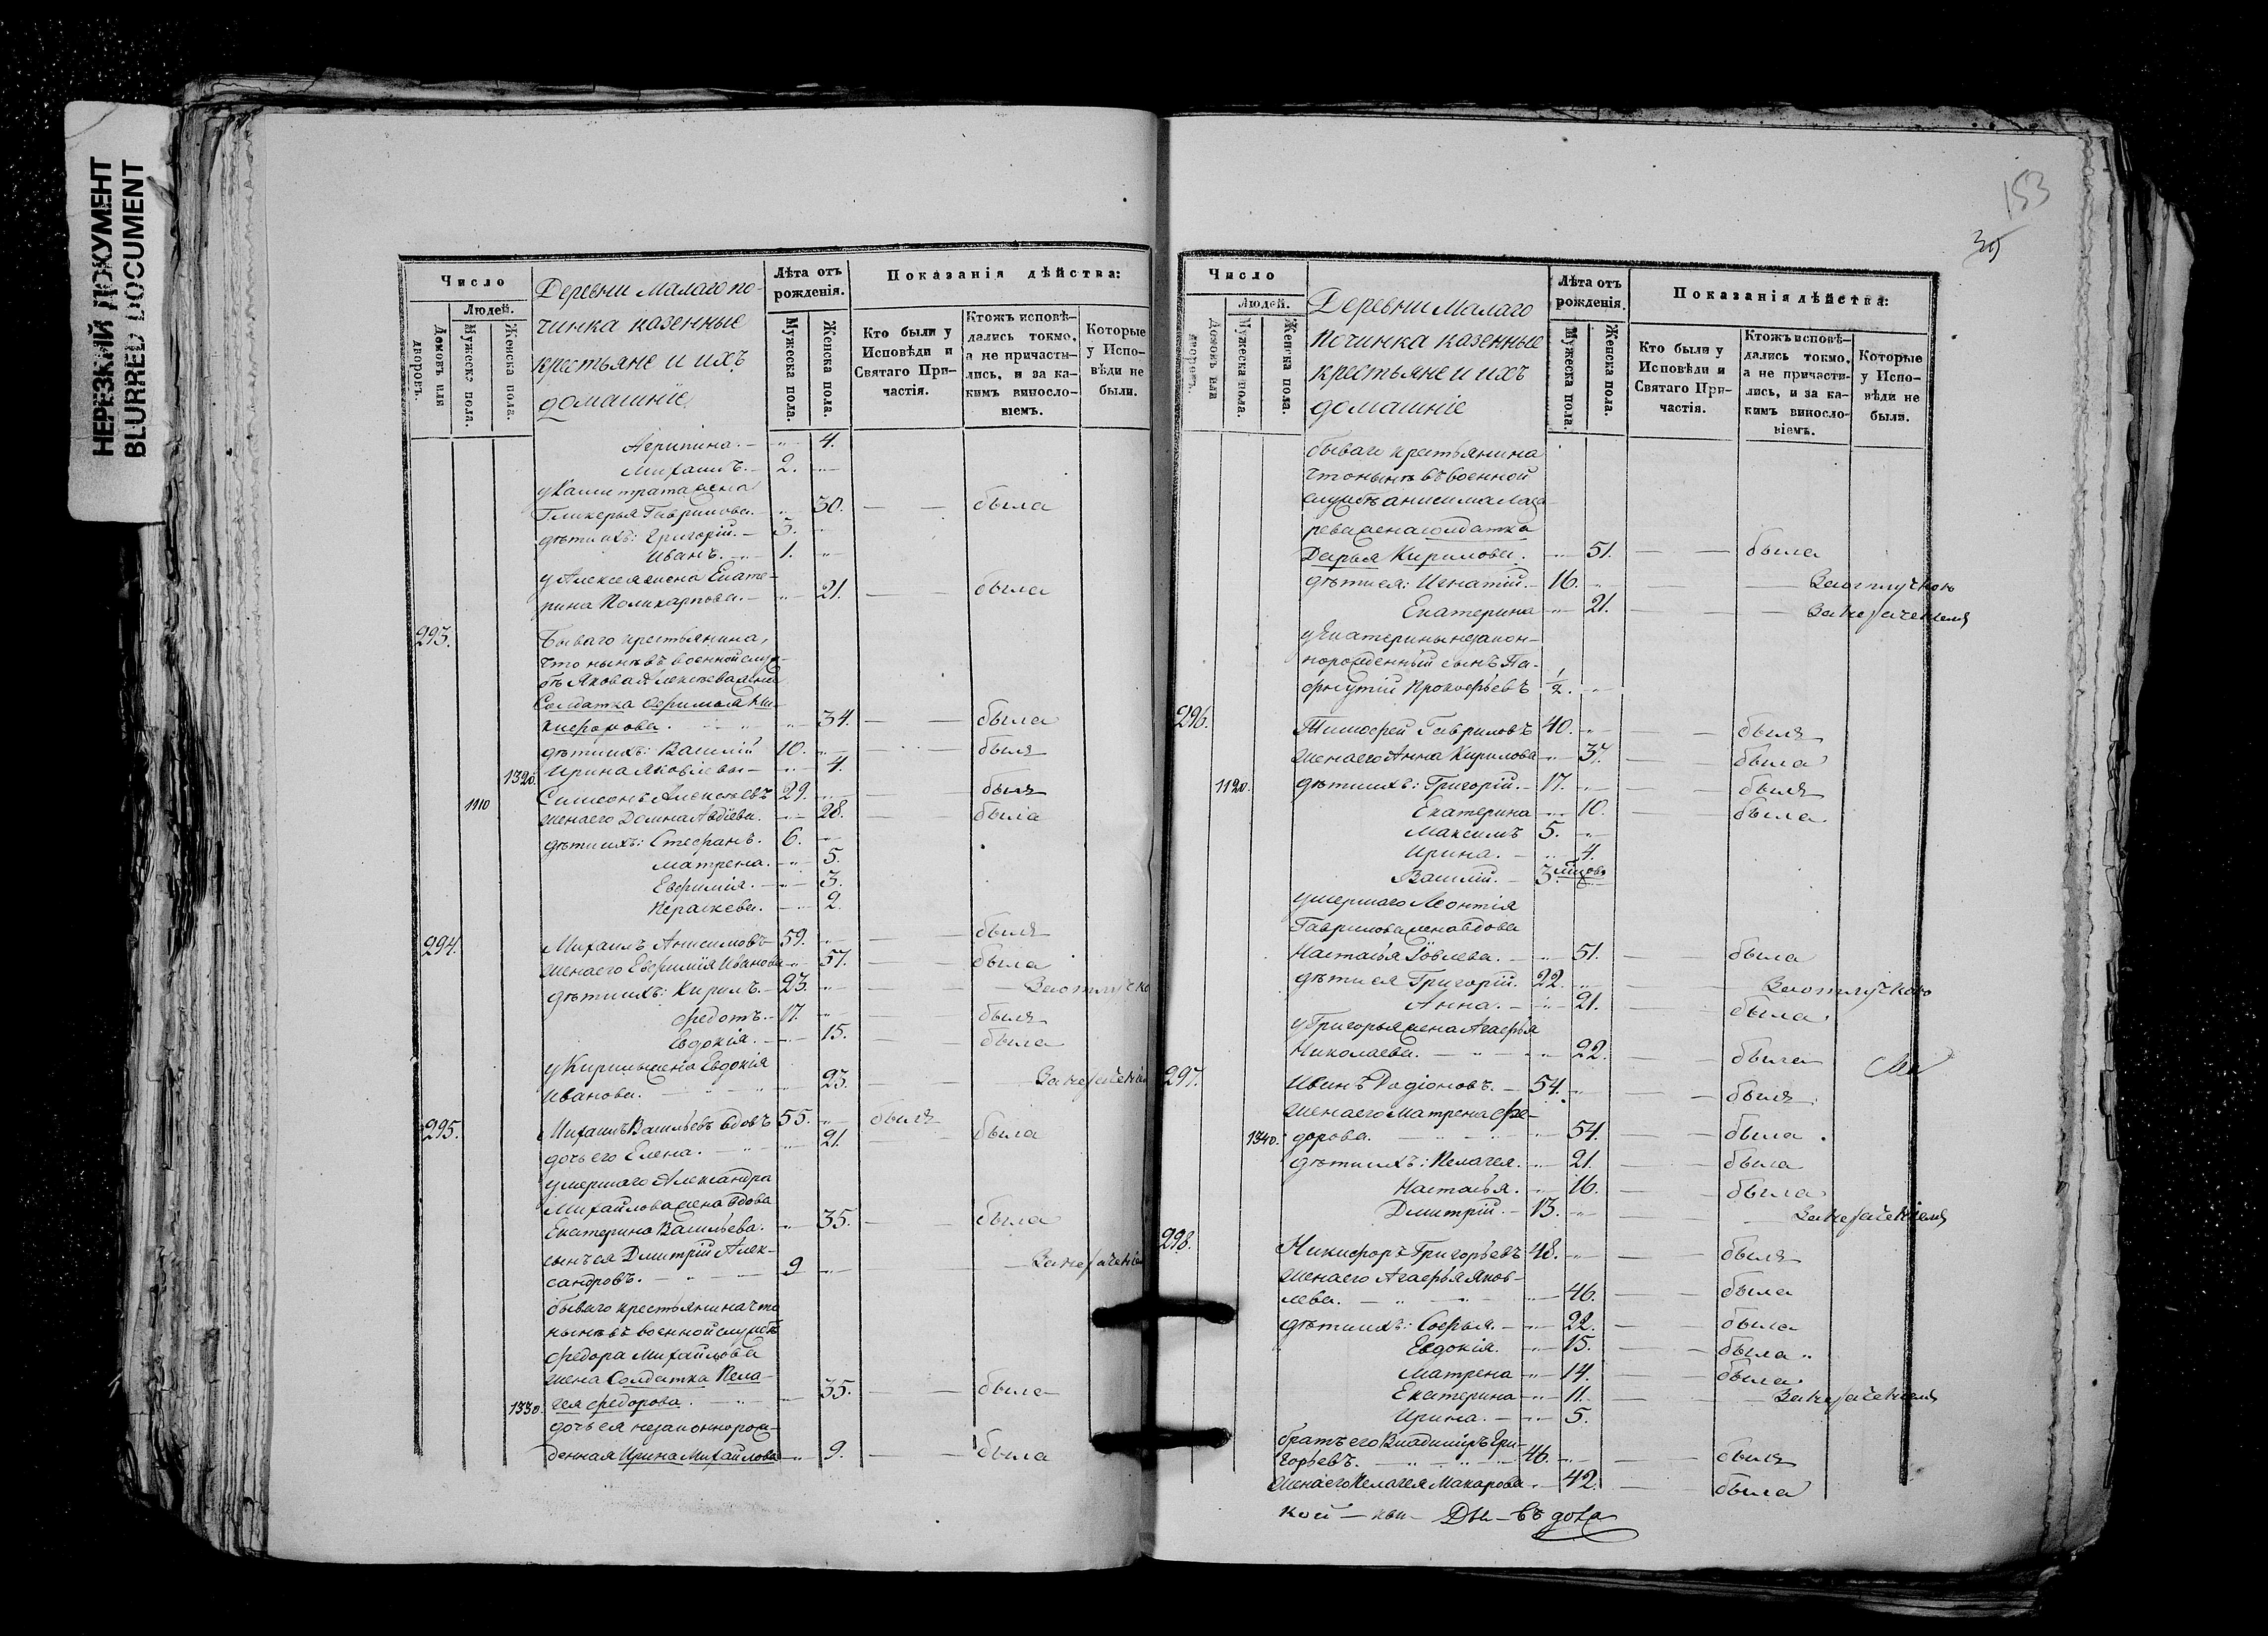 НЕРЕЗКИЙ ДОКУМЕНТ
BLURRED DOCUMENT
Число
Людей.
Домовъ или дворовъ.
Мужеска пола.
Женска пола.
Деревни Малаго по-
чинка казенные
крестьяне и ихъ
домашніе
Лѣта отъ рожденія.
Мужеска пола.
Женска пола.
Показанія дѣйства:
Кто были у Исповѣди и Святаго Причастія.
Ктожъ исповѣ-
дались токмо,
а не причасти-
лись, и за ка-
кимъ виносло-
віемъ.
Которые
у Испо-
вѣди не
были.
Агрипина. 4.
Михаилъ. 2.
у Калистрата жена
Гликерья Гаврилова. 30. была
дѣти ихъ: Григорій. 3.
Иванъ. 1.
у Алексея жена Екате-
рина Поликарпова. 21. была
293. Бываго крестьянина,
что нынѣ въ военной служ-
бѣ Якова Алексѣева жена
Солдатка Ефимья Ни-
кифорова. 34. была
дѣти ихъ: Василій 10. былъ
1320. Ирина Яковлевы 4.
1110 Симеонъ Алексѣевъ 29. былъ
жена его Домна Авдіева. 28. была
дѣти ихъ: Стефанъ. 6.
Матрена. 5.
Евфимія. 3.
Параскева. 2.
294. Михаилъ Анисимовъ 59. былъ
жена его Евфимія Иванова 57. была
дѣти ихъ: Кирилъ. 23. За отлучко
Федотъ. 17. былъ
Евдокія. 15. была
у Кирилы жена Евдокія
Иванова. 23. За нерачені
295. Михаилъ Васильевъ вдовъ 55. былъ
дочь его Елена. 21. была
умершаго Александра
Михайлова жена вдова
Екатерина Васильева. 35. была
сынъ ея Дмитрій Алек-
сандровъ. 9 За нерачені
бываго крестьянина что
нынѣ въ военной службѣ
Федора Михайлова
жена Солдатка Пела-
1330. гея Федорова. 35. была
дочь ея незаконнорож-
денная Ирина Михайлова 9. была
153
39
Число
Людей.
Домовъ или дворовъ.
Мужеска пола.
Женска пола.
Деревни Малаго
Починка казенные
крестьяне и ихъ
домашніе
Лѣта отъ рожденія.
Мужеска пола.
Женска пола.
Показанія дѣйства:
Кто были у
Исповѣди и
Святаго При-
частія.
Ктожъ исповѣ-
дались токмо,
а не причасти-
лись, и за ка-
кимъ виносло-
віемъ.
Которые
у Испо-
вѣди не
были.
бываго крестьянина
что нынѣ въ военной
службѣ Анисима Лаза-
рева жена солдатка
Дарья Кирилова. 51. была
дѣти ея: Игнатій. 16. За отлучкою
Екатерина 21. За нераченіемъ
у Екатерины незакон-
норожденный сынъ Па-
фнутій Прокофьевъ 1/2.
296. Тимофей Гавриловъ 40. былъ
жена его Анна Кирилова 37. была
1120. дѣти ихъ: Григорій. 17. былъ
Екатерина 10. была
Максимъ 5.
Ирина. 4.
Василій. 3.
умершаго Леонтія
Гаврилова жена вдова
Наталья Іовлева. 51. была
дѣти ея Григорій. 22. За отлучкою
Анна. 21. была
у Григорья жена Агафья
Николаева. 22. была
297. Иванъ Родіоновъ. 54. былъ
жена его Матрена Фе-
1340. дорова. 54. была
дѣти ихъ: Пелагея. 21. была
Наталья. 16. была
Дмитрій. 13. За нераченіемъ
298. Никифоръ Григорьевъ 48. былъ
жена его Агафья Яков-
лева. 46. была
дѣти ихъ: Софья. 22. была
Евдокія. 15. была
Матрена 14. была
Екатерина 11. За нераченіемъ
Ирина. 5.
братъ его Владиміръ Гри-
горьевъ. 46. былъ
жена его Пелагея Макарова 42. была